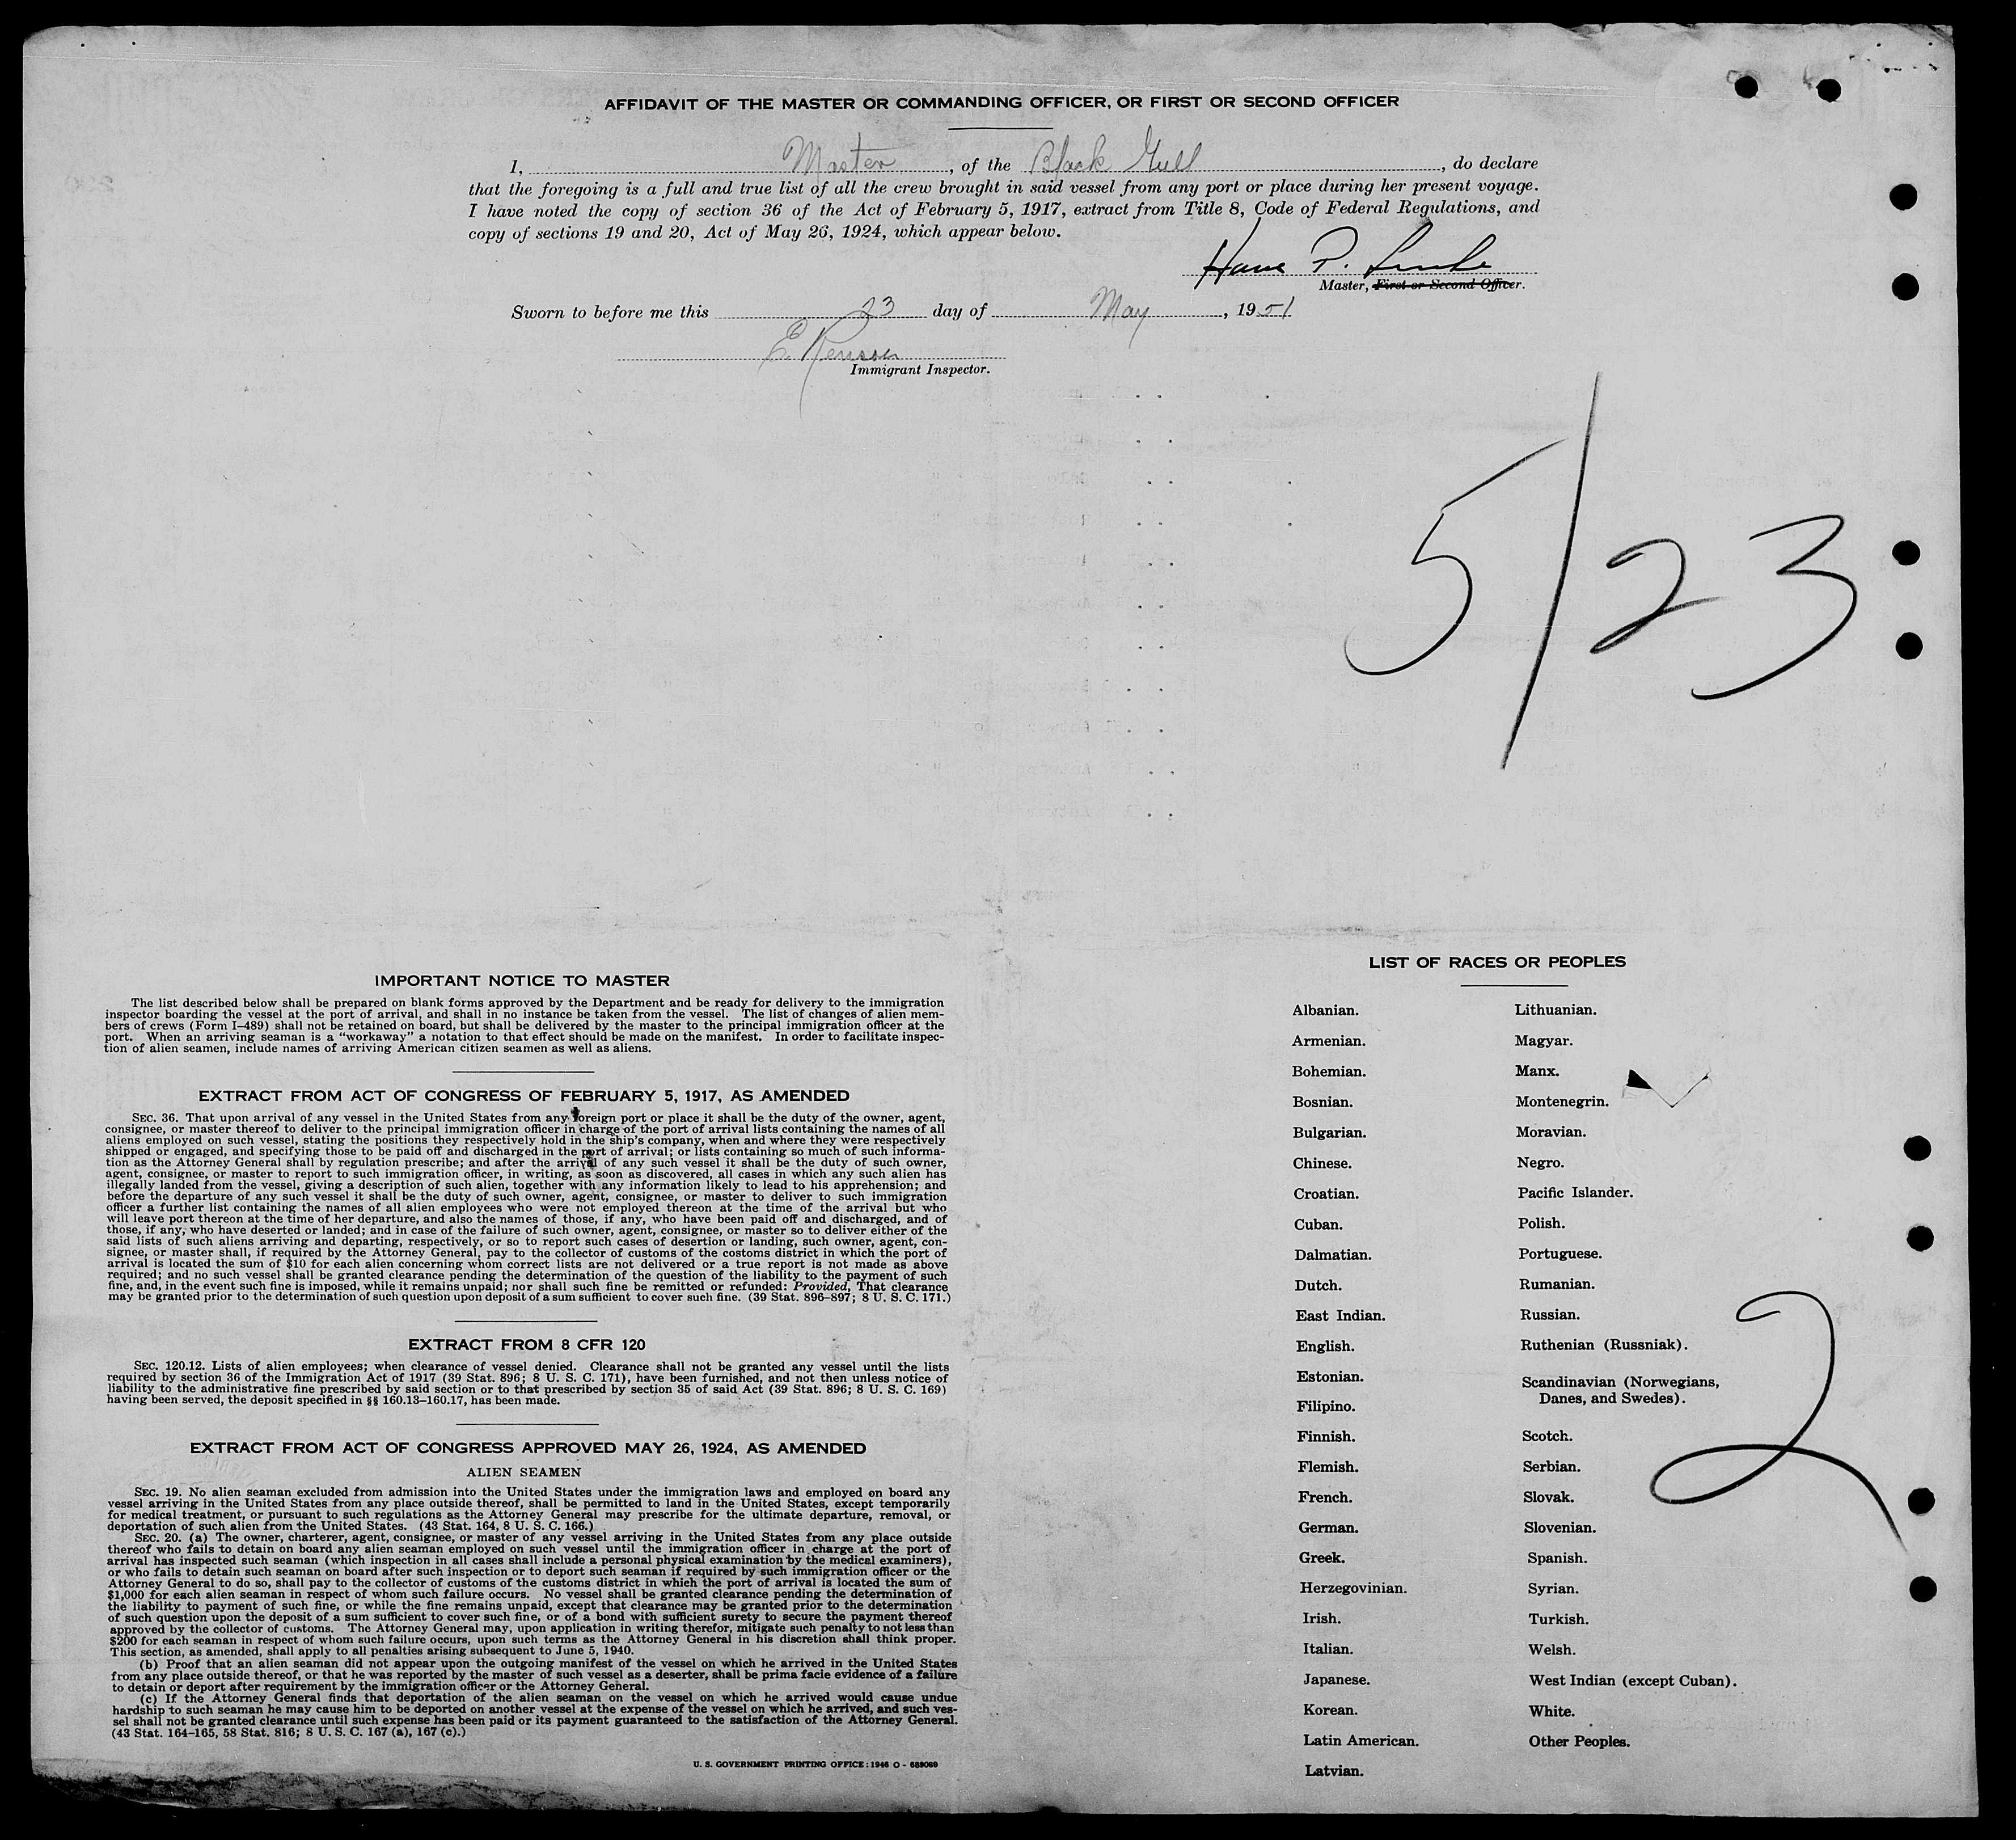 AFFIDAVIT OF THE MASTER OR COMMANDING OFFICER, OR FIRST OR SECOND OFFICER
I, Master, of the Black Gull, do declare
that the foregoing is a full and true list of all the crew brought in said vessel from any port or place during her present voyage.
I have noted the copy of section 36 of the Act of February 5, 1917, extract from Title 8, Code of Federal Regulations, and
copy of sections 19 and 20, Act of May 26, 1924, which appear below.
Hans P.
Master, First or Second Officer.
Sworn to before me this 23 day of May, 1951
E.
Immigrant Inspector.
5/23
IMPORTANT NOTICE TO MASTER
The list described below shall be prepared on blank forms approved by the Department and be ready for delivery to the immigration
inspector boarding the vessel at the port of arrival, and shall in no instance be taken from the vessel. The list of changes of alien mem-
bers of crews (Form I–489) shall not be retained on board, but shall be delivered by the master to the principal immigration officer at the
port. When an arriving seaman is a “workaway” a notation to that effect should be made on the manifest. In order to facilitate inspec-
tion of alien seamen, include names of arriving American citizen seamen as well as aliens.
EXTRACT FROM ACT OF CONGRESS OF FEBRUARY 5, 1917, AS AMENDED
SEC. 36. That upon arrival of any vessel in the United States from any foreign port or place it shall be the duty of the owner, agent,
consignee, or master thereof to deliver to the principal immigration officer in charge of the port of arrival lists containing the names of all
aliens employed on such vessel, stating the positions they respectively hold in the ship's company, when and where they were respectively
shipped or engaged, and specifying those to be paid off and discharged in the port of arrival; or lists containing so much of such informa-
tion as the Attorney General shall by regulation prescribe; and after the arrival of any such vessel it shall be the duty of such owner,
agent, consignee, or master to report to such immigration officer, in writing, as soon as discovered, all cases in which any such alien has
illegally landed from the vessel, giving a description of such alien, together with any information likely to lead to his apprehension; and
before the departure of any such vessel it shall be the duty of such owner, agent, consignee, or master to deliver to such immigration
officer a further list containing the names of all alien employees who were not employed thereon at the time of the arrival but who
will leave port thereon at the time of her departure, and also the names of those, if any, who have been paid off and discharged, and of
those, if any, who have deserted or landed; and in case of the failure of such owner, agent, consignee, or master so to deliver either of the
said lists of such aliens arriving and departing, respectively, or so to report such cases of desertion or landing, such owner, agent, con-
signee, or master shall, if required by the Attorney General, pay to the collector of customs of the costoms district in which the port of
arrival is located the sum of $10 for each alien concerning whom correct lists are not delivered or a true report is not made as above
required; and no such vessel shall be granted clearance pending the determination of the question of the liability to the payment of such
fine, and, in the event such fine is imposed, while it remains unpaid; nor shall such fine be remitted or refunded: Provided, That clearance
may be granted prior to the determination of such question upon deposit of a sum sufficient to cover such fine. (39 Stat. 896–897; 8 U. S. C. 171.)
EXTRACT FROM 8 CFR 120
SEC. 120.12. Lists of alien employees; when clearance of vessel denied. Clearance shall not be granted any vessel until the lists
required by section 36 of the Immigration Act of 1917 (39 Stat. 896; 8 U. S. C. 171), have been furnished, and not then unless notice of
liability to the administrative fine prescribed by said section or to that prescribed by section 35 of said Act (39 Stat. 896; 8 U. S. C. 169)
having been served, the deposit specified in §§ 160.13–160.17, has been made.
EXTRACT FROM ACT OF CONGRESS APPROVED MAY 26, 1924, AS AMENDED
ALIEN SEAMEN
SEC. 19. No alien seaman excluded from admission into the United States under the immigration laws and employed on board any
vessel arriving in the United States from any place outside thereof, shall be permitted to land in the United States, except temporarily
for medical treatment, or pursuant to such regulations as the Attorney General may prescribe for the ultimate departure, removal, or
deportation of such alien from the United States. (43 Stat. 164, 8 U. S. C. 166.)
SEC. 20. (a) The owner, charterer, agent, consignee, or master of any vessel arriving in the United States from any place outside
thereof who fails to detain on board any alien seaman employed on such vessel until the immigration officer in charge at the port of
arrival has inspected such seaman (which inspection in all cases shall include a personal physical examination by the medical examiners),
or who fails to detain such seaman on board after such inspection or to deport such seaman if required by such immigration officer or the
Attorney General to do so, shall pay to the collector of customs of the customs district in which the port of arrival is located the sum of
$1,000 for each alien seaman in respect of whom such failure occurs. No vessel shall be granted clearance pending the determination of
the liability to payment of such fine, or while the fine remains unpaid, except that clearance may be granted prior to the determination
of such question upon the deposit of a sum sufficient to cover such fine, or of a bond with sufficient surety to secure the payment thereof
approved by the collector of customs. The Attorney General may, upon application in writing therefor, mitigate such penalty to not less than
$200 for each seaman in respect of whom such failure occurs, upon such terms as the Attorney General in his discretion shall think proper.
This section, as amended, shall apply to all penalties arising subsequent to June 5, 1940.
(b) Proof that an alien seaman did not appear upon the outgoing manifest of the vessel on which he arrived in the United States
from any place outside thereof, or that he was reported by the master of such vessel as a deserter, shall be prima facie evidence of a failure
to detain or deport after requirement by the immigration officer or the Attorney General.
(c) If the Attorney General finds that deportation of the alien seaman on the vessel on which he arrived would cause undue
hardship to such seaman he may cause him to be deported on another vessel at the expense of the vessel on which he arrived, and such ves-
sel shall not be granted clearance until such expense has been paid or its payment guaranteed to the satisfaction of the Attorney General.
(43 Stat. 164–165, 58 Stat. 816; 8 U. S. C. 167 (a), 167 (c).)
U. S. GOVERNMENT PRINTING OFFICE : 1946 O - 689089
LIST OF RACES OR PEOPLES
Albanian.
Armenian.
Bohemian.
Bosnian.
Bulgarian.
Chinese.
Croatian.
Cuban.
Dalmatian.
Dutch.
East Indian.
English.
Estonian.
Filipino.
Finnish.
Flemish.
French.
German.
Greek.
Herzegovinian.
Irish.
Italian.
Japanese.
Korean.
Latin American.
Latvian.
Lithuanian.
Magyar.
Manx.
Montenegrin.
Moravian.
Negro.
Pacific Islander.
Polish.
Portuguese.
Rumanian.
Russian.
Ruthenian (Russniak).
Scandinavian (Norwegians,
Danes, and Swedes).
Scotch.
Serbian.
Slovak.
Slovenian.
Spanish.
Syrian.
Turkish.
Welsh.
West Indian (except Cuban).
White.
Other Peoples.
2